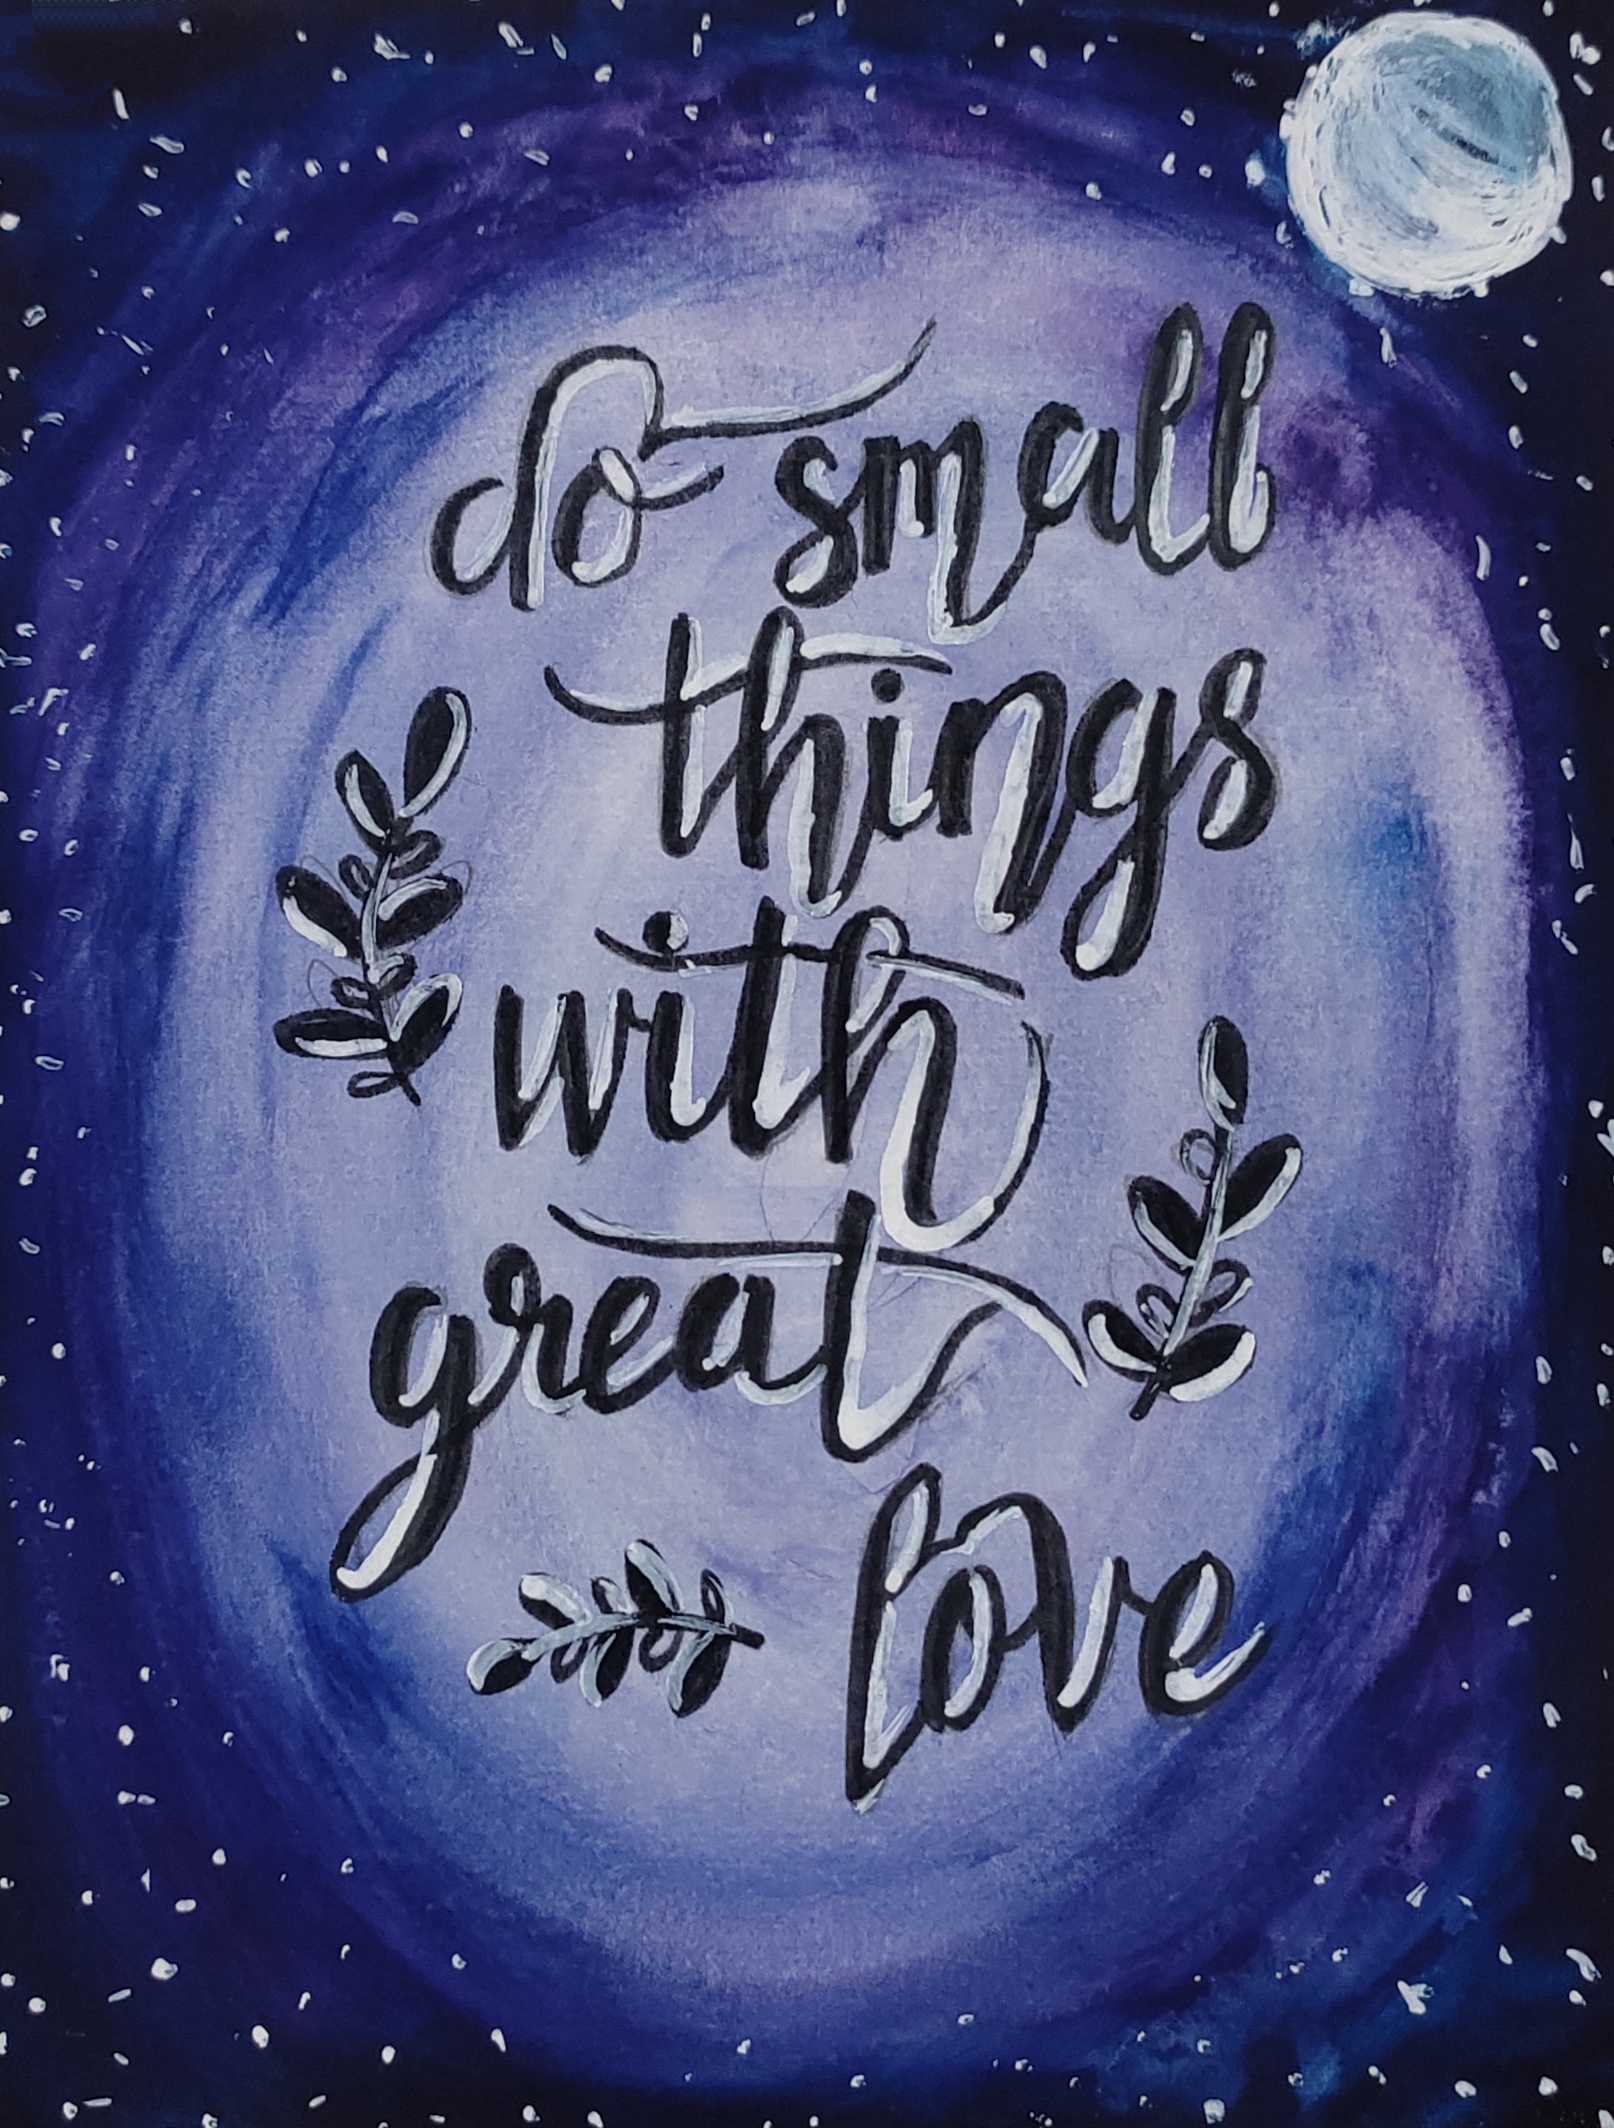 do small
things
with
great
love